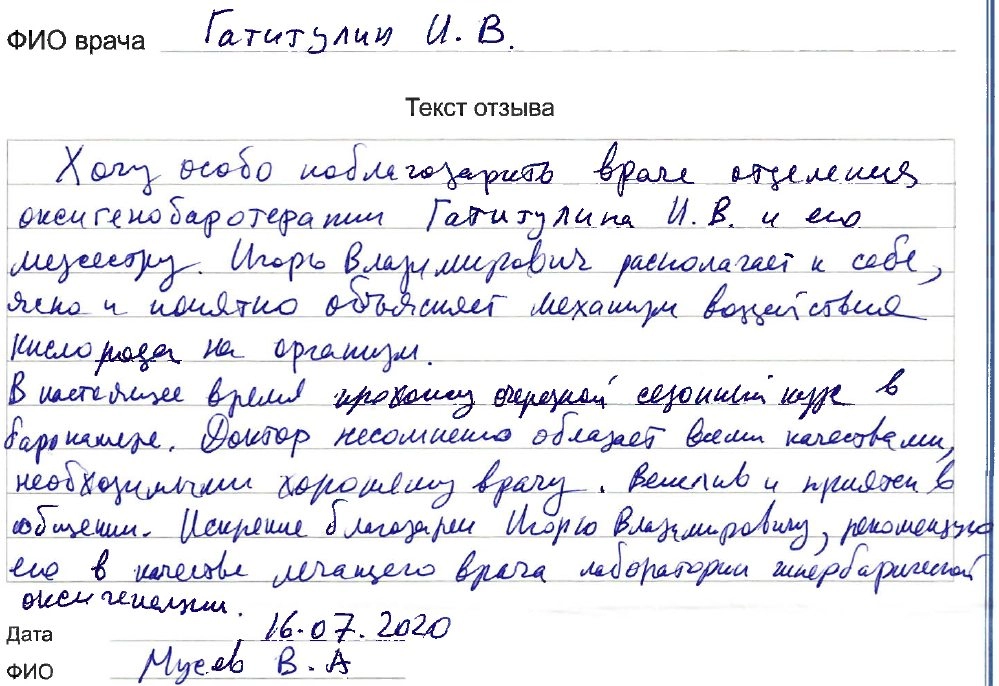 ФИО врача Гатитулин И. В.
Текст отзыва
Хочу особо поблагодарить врача отделения
оксигенобаротерапии Гатитулина И. В. и его
медсестру. Игорь Владимирович располагает к себе,
ясно и понятно объясняет механизм воздействия
кислорода на организм.
В настоящее время прохожу очередной сезонный курс в
барокамере. Доктор несомненно обладает всеми качествами,
необходимыми хорошему врачу. Вежлив и приятен в
общении. Искренне благодарен Игорю Владимировичу, рекомендую
его в качестве лечащего врача лаборатории гипербарической
оксигенации.
Дата 16.07.2020
ФИО В. А